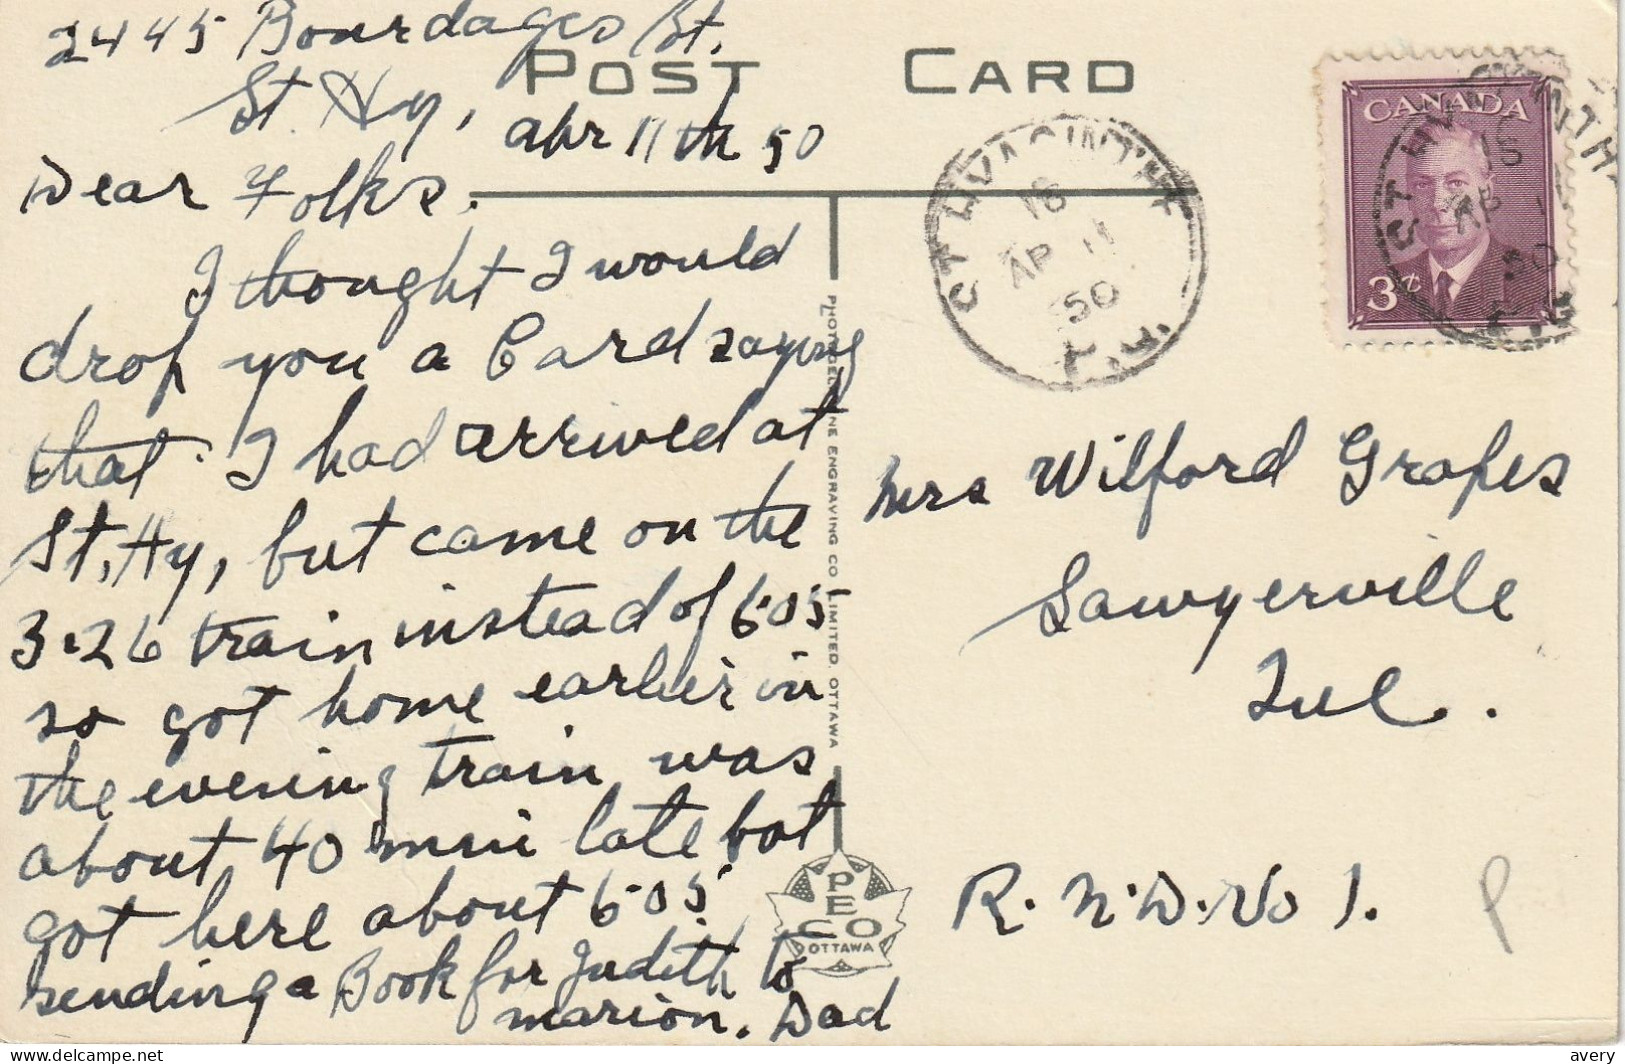 2445 Bourdages St.
St. Hy,
Apr 11th 50
POST CARD
Dear Folks.
I thought I would
drop you a Card saying
that I had arrived at
St. Hy, but came on the
3.26 train instead of 6.05
so got home earlier in
the evening train was
about 40 min late but
got here about 6.05
sending a Book for Judith to
marion. Dad
PHOTOGELATINE ENGRAVING CO. LIMITED. OTTAWA
PECO
OTTAWA
ST HYACINTHE
16
AP 11
50
P.Q.
CANADA
3¢
ST HYACINTHE
AP
50
P.Q.
Mrs Wilford Grapes
Sawyerville
Que.
R.R.D. No 1.
P
delcampe.net
avery